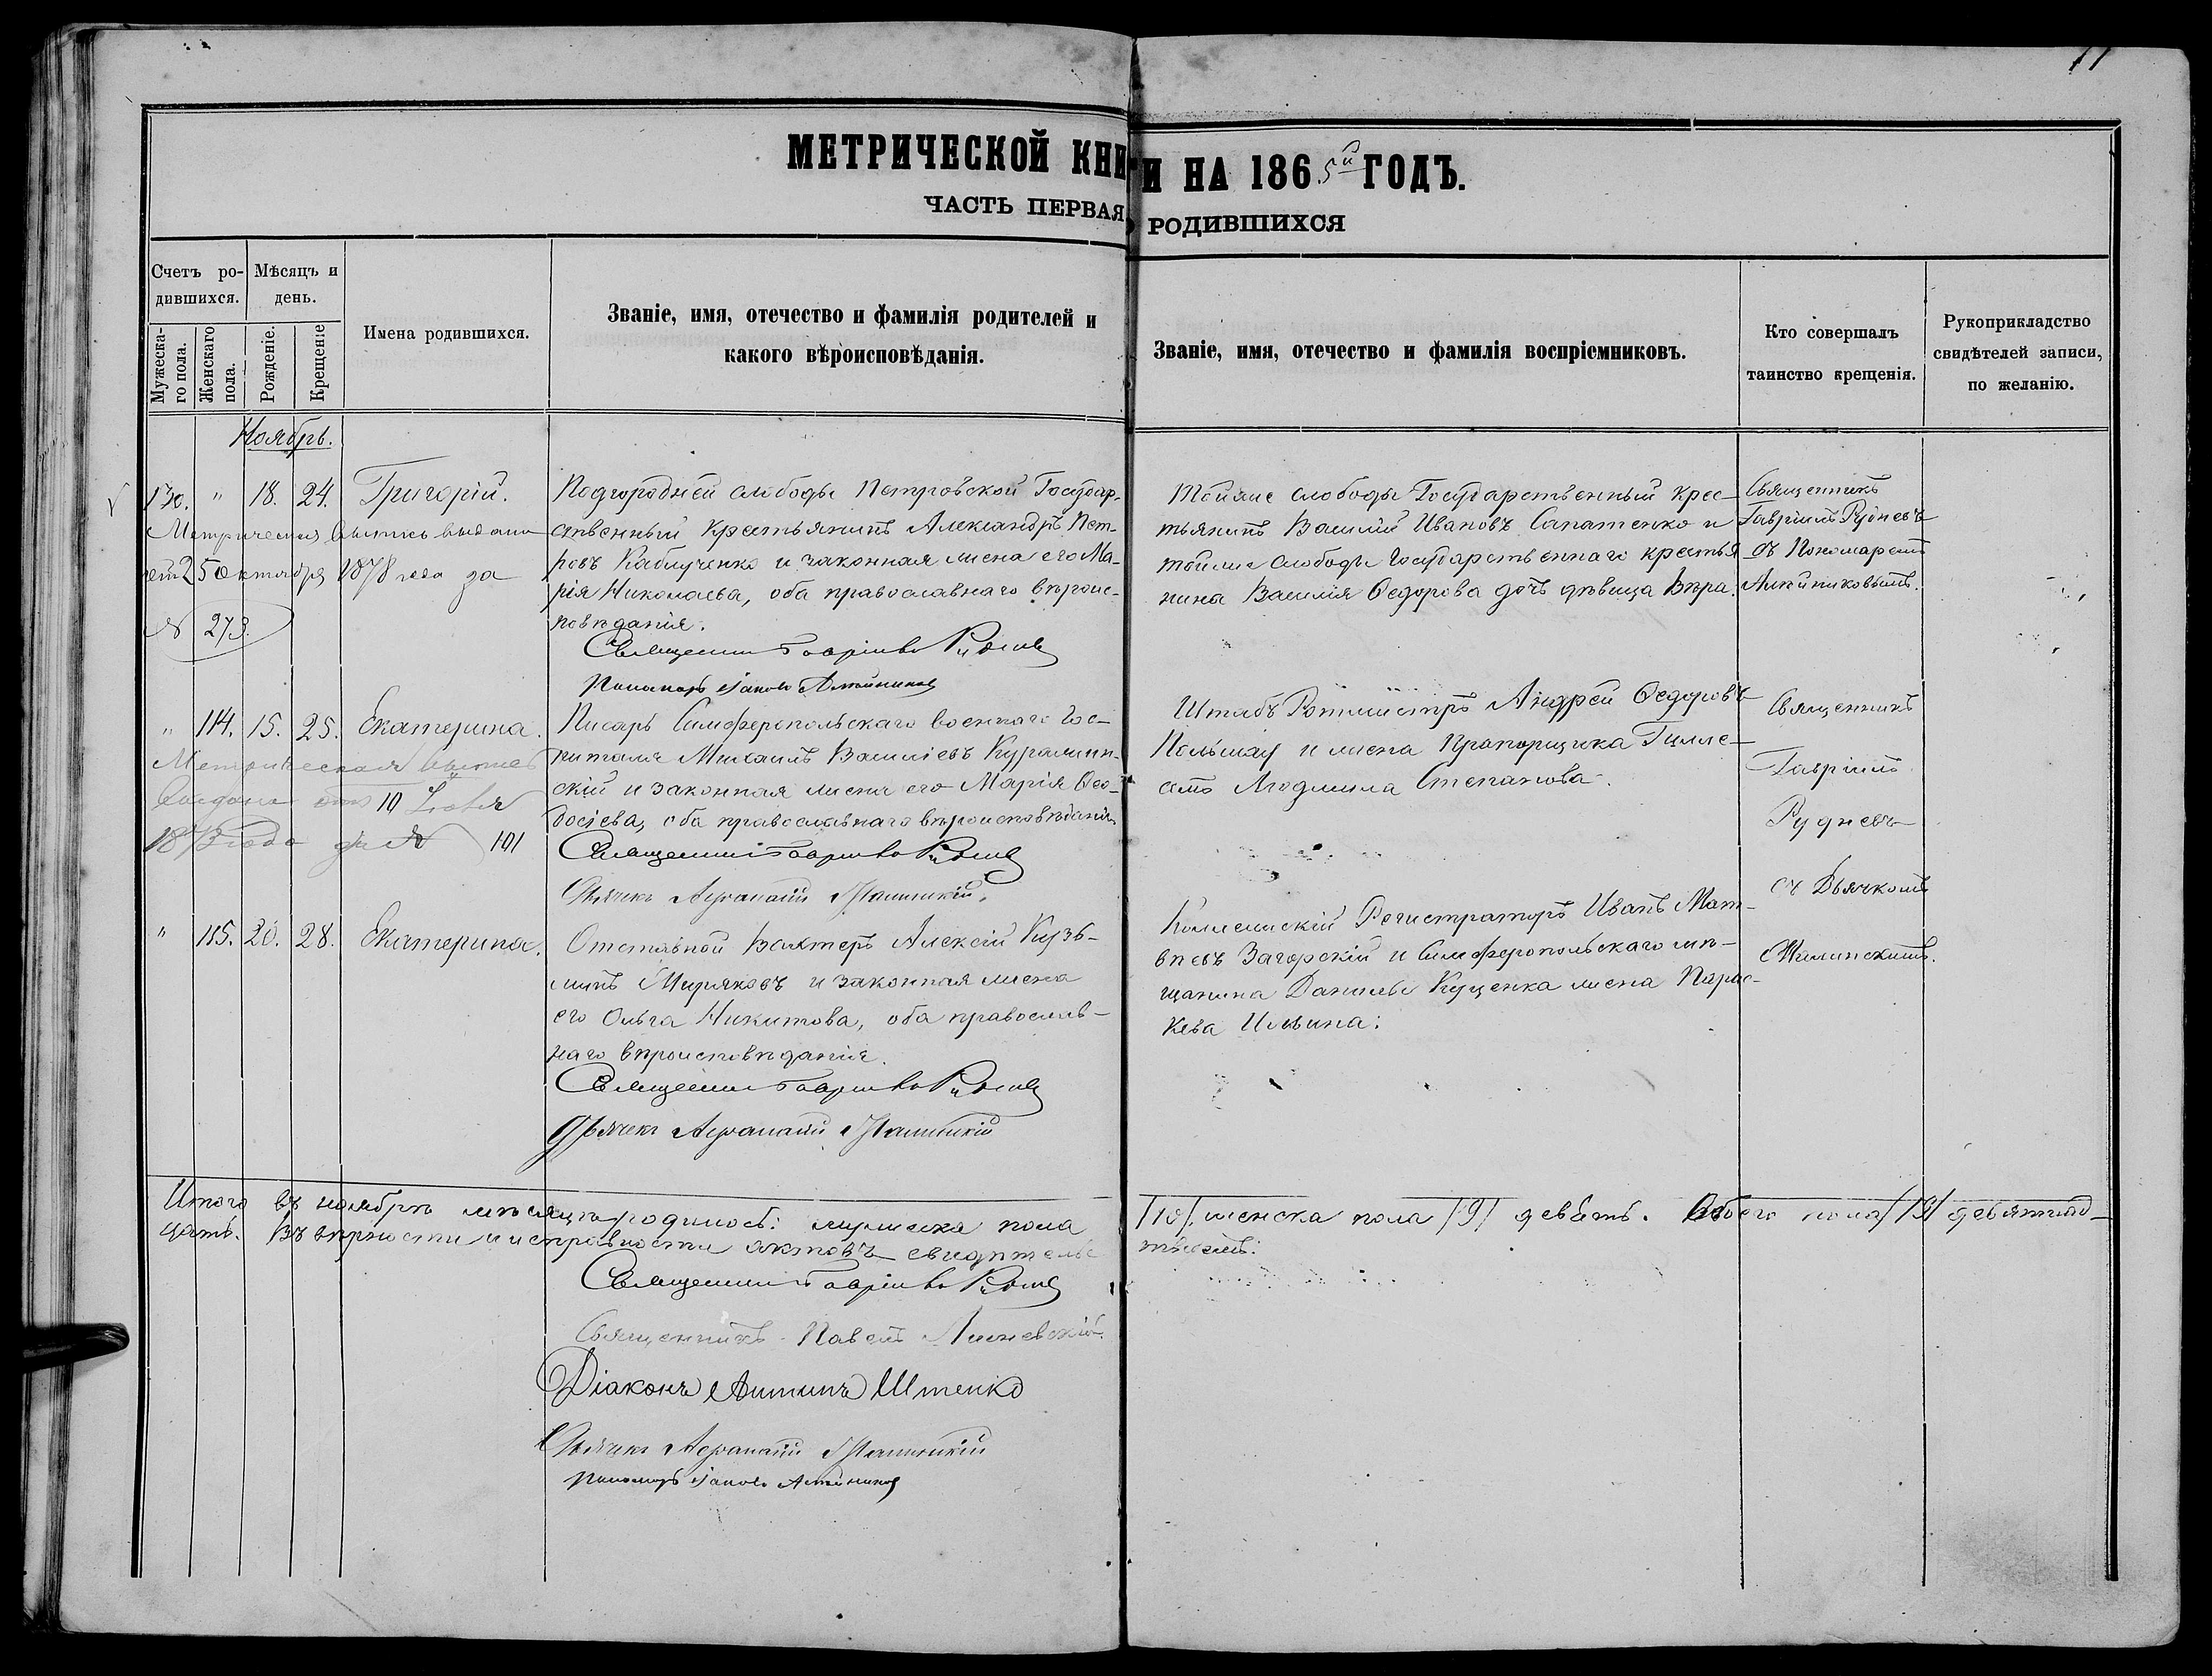 11
МЕТРИЧЕСКОЙ КНИГИ НА 1865й ГОДЪ.
ЧАСТЬ ПЕРВАЯ, О РОДИВШИХСЯ
Счетъ ро-
дившихся.
Мѣсяцъ и
день.
Мужеска-
го пола.
Женскаго
пола.
Рожденіе.
Крещеніе
Имена родившихся.
Званіе, имя, отечество и фамилія родителей и
какого вѣроисповѣданія.
Званіе, имя, отечество и фамилія воспріемниковъ.
Кто совершалъ
таинство крещенія.
Рукоприкладство
свидѣтелей записи,
по желанію.
Ноябрь.
130. " 18. 24. Григорій.
Метрическая выпись выдана
25 октября 1878 года за
№ 273.
Подгородней слободы Петровской Государ-
ственный крестьянинъ Александръ Пет-
ровъ Каблученко и законная жена его Ма-
рія Николаева, оба православнаго вѣроис-
повѣданія.
Священникъ Гавріилъ Рудневъ
Пономарь Іаковъ Алейниковъ
Тойже слободы Государственный крес-
тьянинъ Василій Ивановъ Сапатенко и
тойже слободы Государственнаго крестья-
нина Василія Ѳедорова дочь дѣвица Вѣра.
Священникъ
Гавріилъ Рудневъ
съ Пономаремъ
Алейниковымъ.
" 114. 15. 25. Екатерина.
Метрическая выпись
выдана 10 Іюля
1873 года за № 101
Писарь Симферопольскаго военнаго Гос-
питаля Михаилъ Василіевъ
скій и законная жена его Марія Ѳео-
досіева, оба православнаго вѣроисповѣданія
Священникъ Гавріилъ Рудневъ
Дьячекъ Аѳанасій
Штабъ Ротмистръ Андрей Ѳедоровъ
и жена Прапорщика
Людмила Степанова.
Священникъ
Гавріилъ
Рудневъ
съ Дьячкомъ
" 115. 20. 28. Екатерина.
Отставной Вахтеръ Алексій Кузь-
минъ Миряковъ и законная жена
его Ольга Никитова, оба православ-
наго вѣроисповѣданія.
Священникъ Гавріилъ Рудневъ
Дьячекъ Аѳанасій
Коллежскій Регистраторъ Иванъ Мат-
вѣевъ Загорскій и Симферопольскаго мѣ-
щанина Даніила Куценка жена Парас-
кева Ильина.
Итого въ ноябрѣ мѣсяцѣ родилось: мужеска пола /10/, женска пола /9/ девять. Обоего пола /19/ девятнад-
цать. Въ вѣрности и исправности актовъ свидѣтельствуемъ:
Священникъ Гавріилъ Рудневъ
Священникъ Павелъ
Діаконъ Антипъ Штенко
Дьячекъ Аѳанасій
Пономарь Іаковъ Алейниковъ